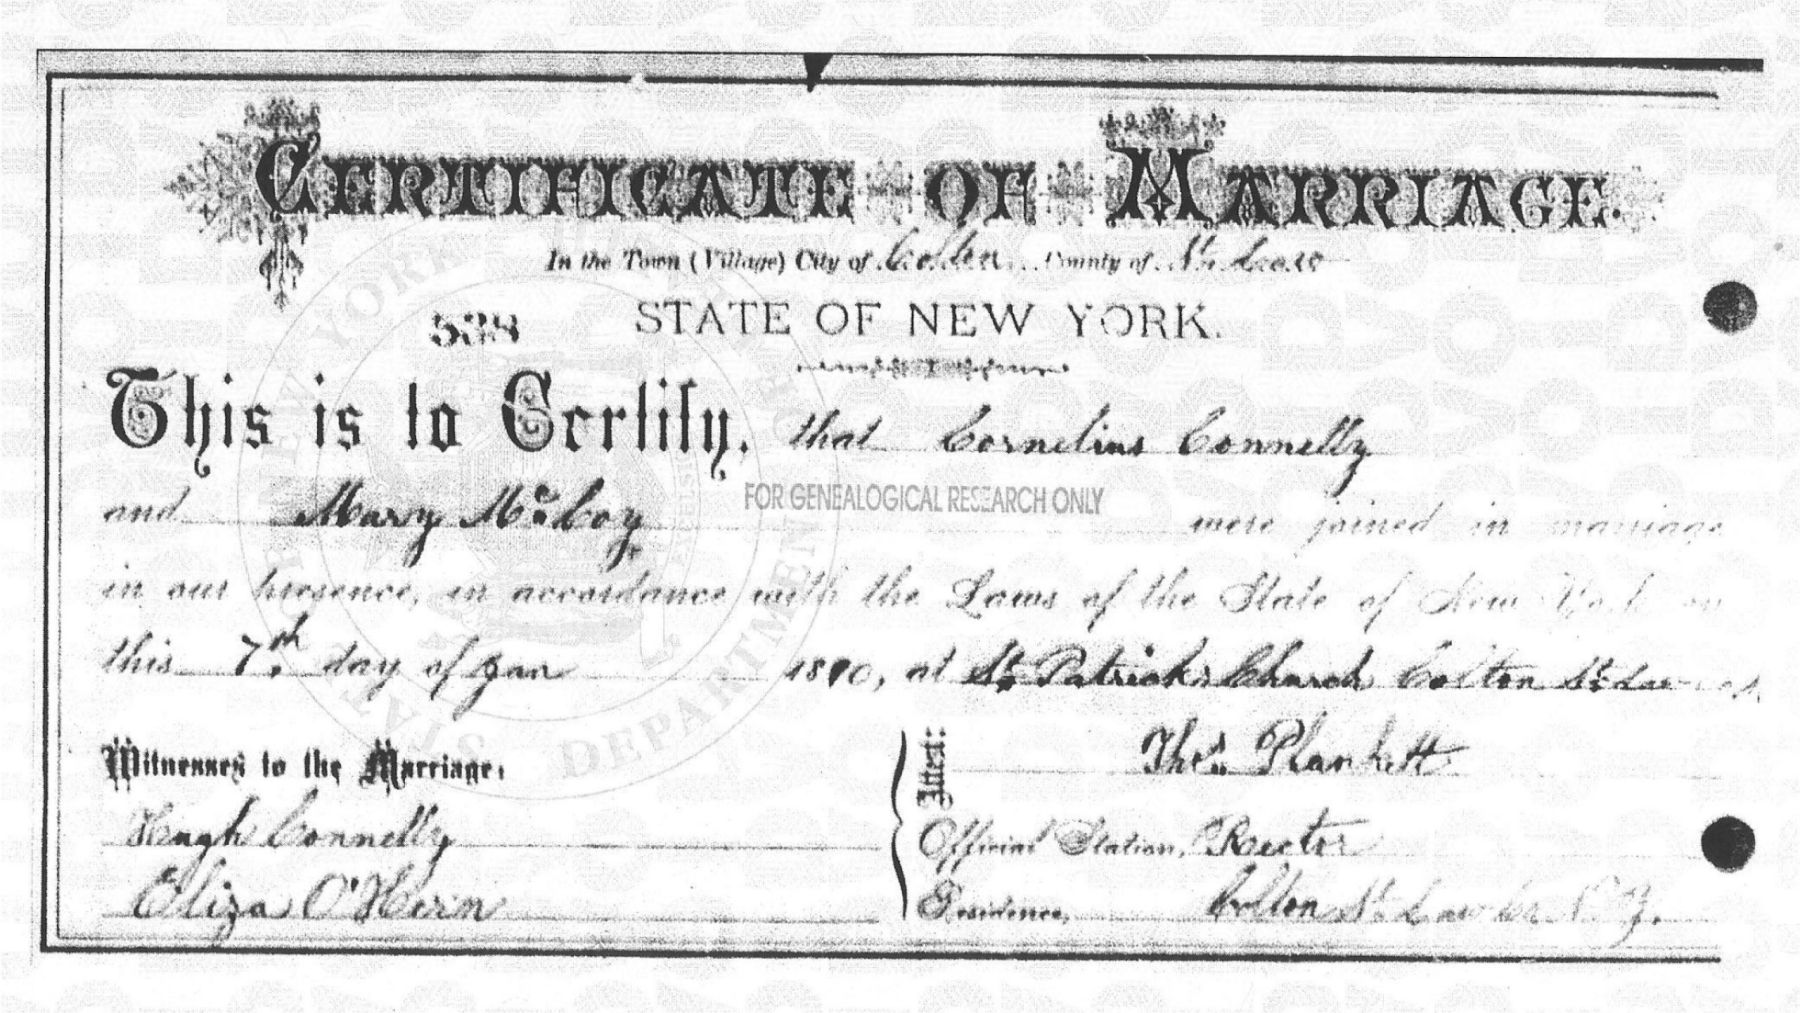 CERTIFICATE OF MARRIAGE.
In the Town (Village) City of Colton County of St. Law
538 STATE OF NEW YORK.
This is to Certify, that Cornelius Connelly
and Mary McCoy were joined in marriage
FOR GENEALOGICAL RESEARCH ONLY
in our presence, in accordance with the Laws of the State of New York on
this 7th day of Jan 1890, at St. Patricks Church Colton St. Law
Witnesses to the Marriage:
Hugh Connelly
Eliza O'Hern
Attest: Thos. Plunkett
Official Station, Rector
Residence, Colton St. Law Co N.Y.
STATE OF NEW YORK
DEPARTMENT